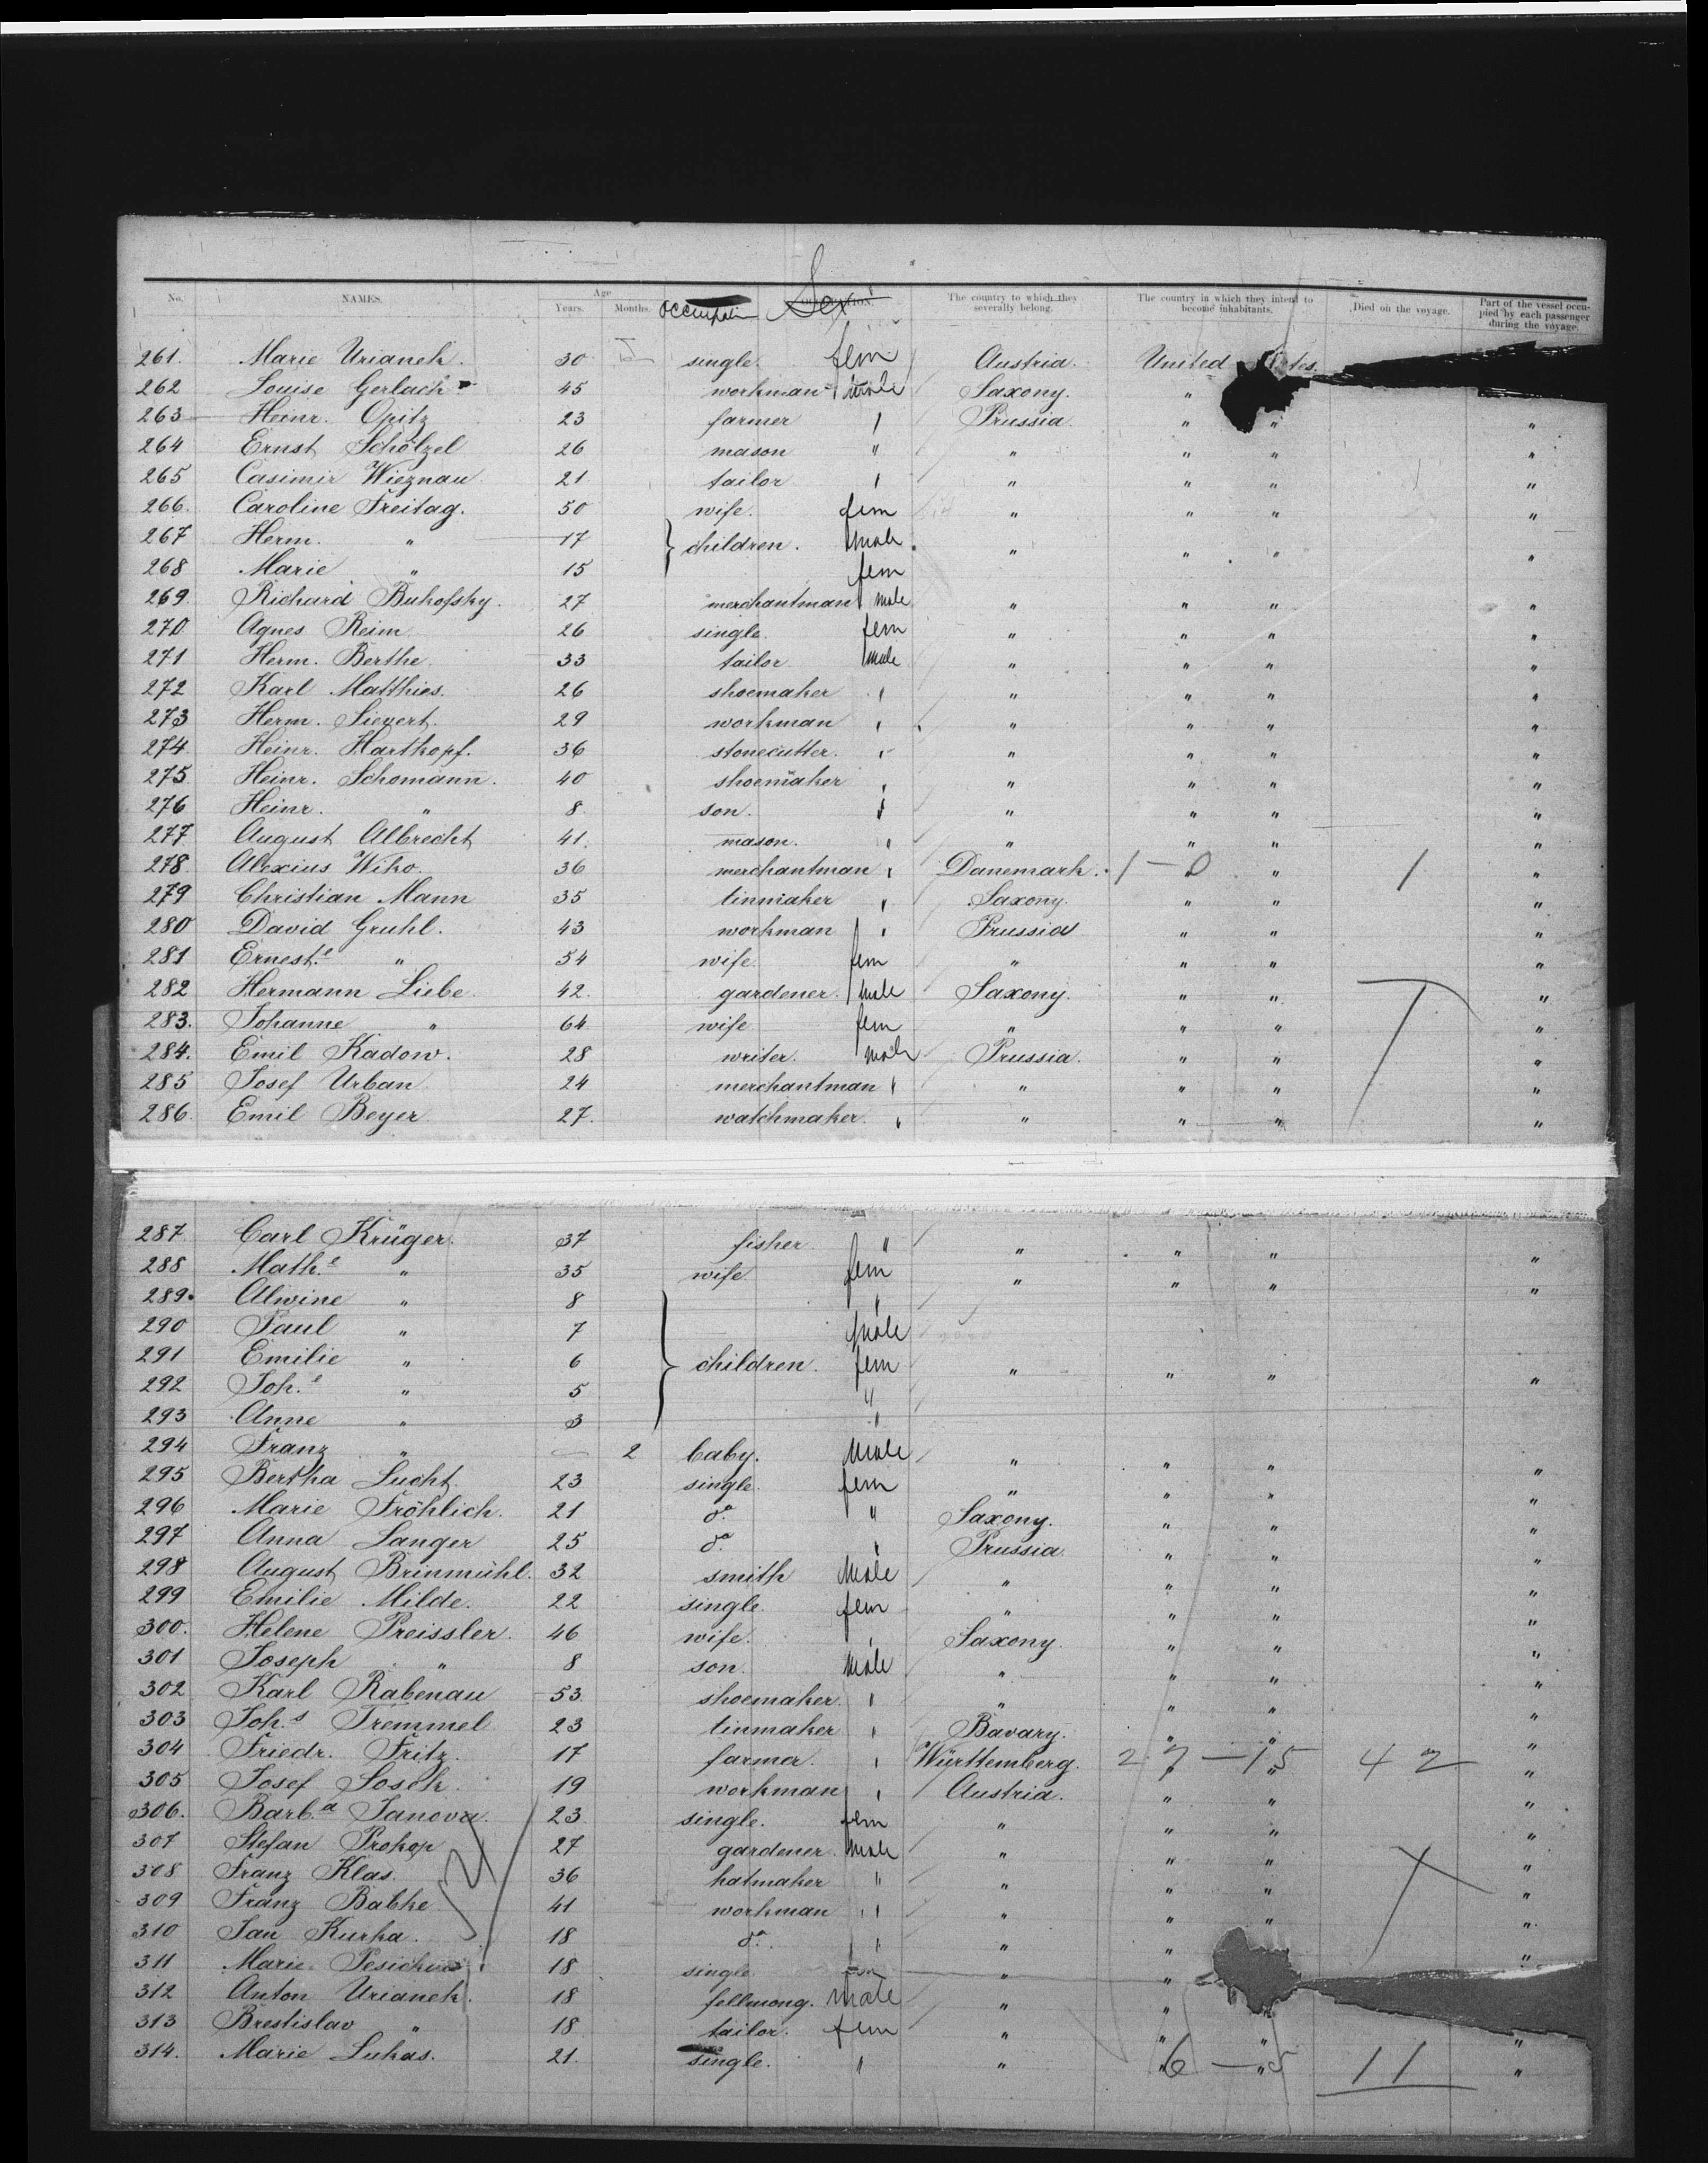 Sex
No. NAMES. Age Years. Months. Occupation The country to which they severally belong. The country in which they intend to become inhabitants. Died on the voyage. Part of the vessel occupied by each passenger during the voyage.
261. Marie Urianek. 30 single. fem Austria. United
262 Louise Gerlach 45 workman male Saxony. "
263 Heinr. Opitz 23 farmer " Prussia. " " "
264 Ernst Schölzel 26 mason " " " " "
265 Casimir Wieznau 21 tailor " " " " "
266. Caroline Freitag. 50 wife. fem " " " "
267 Herm. " 17 } children. male " " " "
268 Marie " 15 fem
269. Richard Bukofsky. 27 merchantman male " " " "
270. Agnes Reim 26 single. fem " " " "
271 Herm. Berthe 33 tailor male " " " "
272 Karl Matthies. 26 shoemaker " " " " "
273 Herm. Sievert. 29 workman " " " " "
274. Heinr. Harthopf. 36 stonecutter. " " " " "
275. Heinr. Schomann. 40 shoemaker " " " " "
276 Heinr. " 8 son. " " " " "
277 August Albrecht 41. mason. " " " " "
278. Alexius Wiho 36 merchantman " Danemark. 1 – 0 " 1 "
279 Christian Mann 35 tinmaker " Saxony. " " "
280 David Gruhl. 43 workman " Prussia " " "
281 Ernest.e " 54 wife. fem " " " "
282 Hermann Liebe. 42. gardener. male Saxony. " " "
283. Johanne " 64 wife fem " " " "
284. Emil Kadow. 28 writer. male Prussia. " " "
285 Josef Urban 24 merchantman " " " " "
286. Emil Beyer 27. watchmaker. " " " " "
287. Carl Krüger. 37 fisher " " " " "
288 Math.e " 35 wife. fem " " " "
289. Alwine " 8 "
290 Paul " 7 male
291 Emilie " 6 } children. fem " " " "
292 Joh.e " 5 "
293 Anne " 3 "
294 Franz " 2 baby. male " " " "
295 Bertha Lucht. 23 single. fem " " " "
296 Marie Fröhlich. 21 do. " Saxony. " " "
297 Anna Langer 25 do. " Prussia. " " "
298 August Brinmühl. 32 smith male " " " "
299 Emilie Milde. 22 single. fem " " " "
300. Helene Preissler. 46 wife. " Saxony. " " "
301 Joseph " 8 son. male " " " "
302 Karl Rabenau 53. shoemaker. " " " " "
303 Joh.s Tremmel 23 tinmaker " Bavary. " " "
304 Friedr. Fritz. 17 farmer. " Württemberg. 27 – 15 42 "
305 Josef Sosek. 19 workman " Austria. " " "
306. Barb.a Janova. 23 single. fem " " " "
307 Stefan Prokop 27 gardener. male " " " "
308 Franz Klas. 36 hatmaker " " " " "
309 Franz Babke 41 workman " " " " "
310 Jan Kurka. 18 do. " " " "
311 Marie 18 single " " "
312 Anton Urianek. 18 fellmong. male " "
313 Brestislav " 18 tailor. fem " " " "
314. Marie Lukas. 21. single. " " 6 – 5 11 "